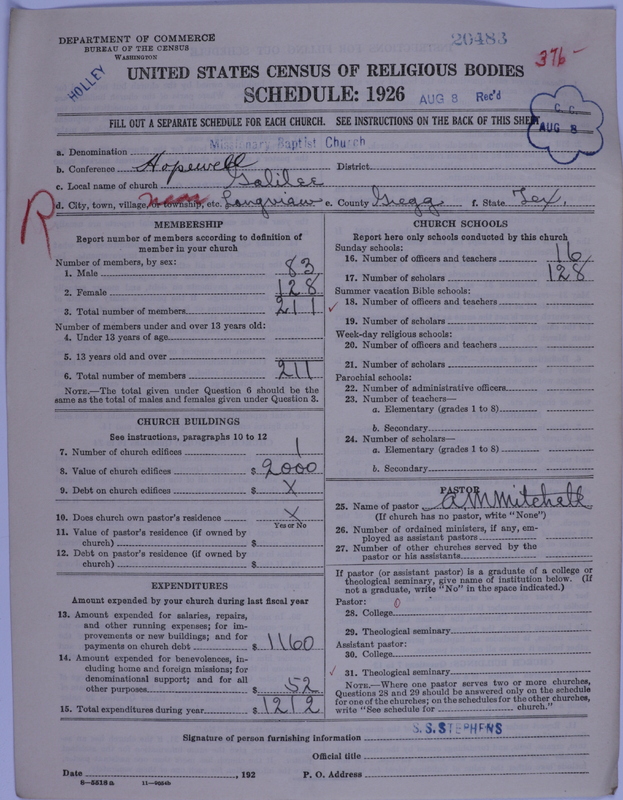 DEPARTMENT OF COMMERCE
BUREAU OF THE CENSUS
WASHINGTON
20483
376-
HOLLEY
UNITED STATES CENSUS OF RELIGIOUS BODIES
SCHEDULE: 1926
AUG 8 Rec'd
C. C.
AUG 8
FILL OUT A SEPARATE SCHEDULE FOR EACH CHURCH. SEE INSTRUCTIONS ON THE BACK OF THIS SHEET
a. Denomination Missionary Baptist Church
b. Conference Hopewell District
c. Local name of church Galilee
R
d. City, town, village, or township, etc. near Longview e. County Gregg f. State Tex.
MEMBERSHIP
Report number of members according to definition of
member in your church
Number of members, by sex:
1. Male 83
2. Female 128
3. Total number of members 211
Number of members under and over 13 years old:
4. Under 13 years of age
5. 13 years old and over
6. Total number of members 211
NOTE.—The total given under Question 6 should be
same as the total of males and females given under Question 3.
CHURCH BUILDINGS
See instructions, paragraphs 10 to 12
7. Number of church edifices 1
8. Value of church edifices $ 2000
9. Debt on church edifices $ X
10. Does church own pastor's residence X
Yes or No
11. Value of pastor's residence (if owned by
church) $
12. Debt on pastor's residence (if owned by
church) $
EXPENDITURES
Amount expended by your church during last fiscal year
13. Amount expended for salaries, repairs,
and other running expenses; for im-
provements or new buildings; and for
payments on church debt $ 1160
14. Amount expended for benevolences, in-
cluding home and foreign missions; for
denominational support; and for all
other purposes $ 52
15. Total expenditures during year $ 1212
CHURCH SCHOOLS
Report here only schools conducted by this church
Sunday schools:
16. Number of officers and teachers 16
17. Number of scholars 128
Summer vacation Bible schools:
✓ 18. Number of officers and teachers
19. Number of scholars
Week-day religious schools:
20. Number of officers and teachers
21. Number of scholars
Parochial schools:
22. Number of administrative officers
23. Number of teachers—
a. Elementary (grades 1 to 8)
b. Secondary
24. Number of scholars—
a. Elementary (grades 1 to 8)
b. Secondary
PASTOR
25. Name of pastor A. M Mitchell
(If church has no pastor, write "None")
26. Number of ordained ministers, if any, em-
ployed as assistant pastors
27. Number of other churches served by the
pastor or his assistants
If pastor (or assistant pastor) is a graduate of a college or
theological seminary, give name of institution below. (If
not a graduate, write "No" in the space indicated.)
Pastor: 0
28. College
29. Theological seminary
Assistant pastor:
30. College
✓ 31. Theological seminary
NOTE.—Where one pastor serves two or more churches,
Questions 28 and 29 should be answered only on the schedule
for one of the churches; on the schedules for the other churches,
write "See schedule for church."
S.S. STEPHENS
Signature of person furnishing information
Official title
Date , 192 P. O. Address
6—5518 a